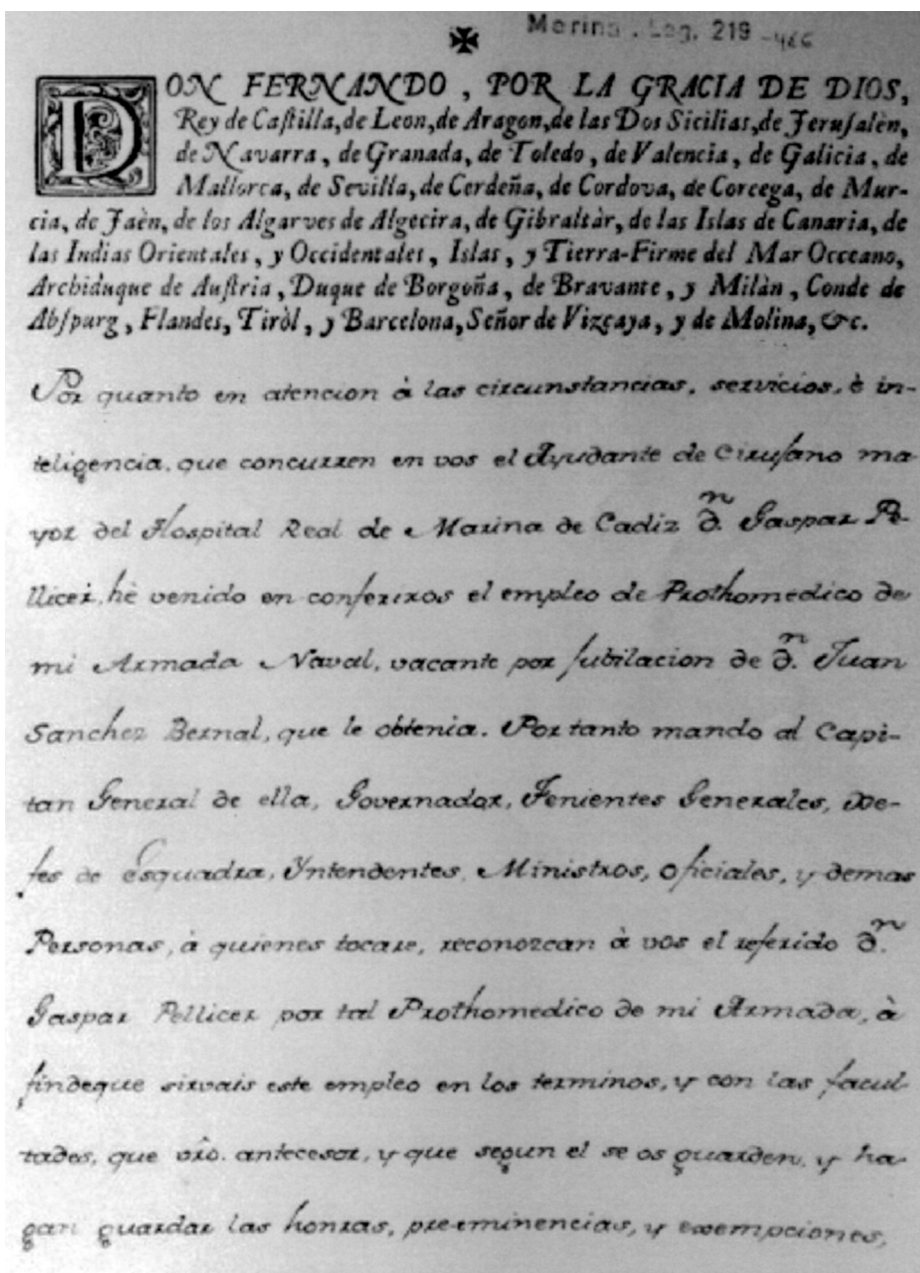 Marina. Leg. 219 -466
DON FERNANDO, POR LA GRACIA DE DIOS,
Rey de Castilla, de Leon, de Aragon, de las Dos Sicilias, de Jerusalèn,
de Navarra, de Granada, de Toledo, de Valencia, de Galicia, de
Mallorca, de Sevilla, de Cerdeña, de Cordova, de Corcega, de Mur-
cia, de Jaèn, de los Algarves de Algecira, de Gibraltàr, de las Islas de Canaria, de
las Indias Orientales, y Occidentales, Islas, y Tierra-Firme del Mar Occeano,
Archiduque de Austria, Duque de Borgoña, de Bravante, y Milàn, Conde de
Abspurg, Flandes, Tiròl, y Barcelona, Señor de Vizcaya, y de Molina, &c.
Por quanto en atencion à las circunstancias, servicios, è in-
teligencia, que concurren en vos el Ayudante de Cirujano ma-
yor del Hospital Real de Marina de Cadiz Dn. Gaspar Pe-
llicer, hè venido en conferiros el empleo de Prothomedico de
mi Armada Naval, vacante por jubilacion de Dn. Juan
Sanchez Bernal, que le obtenia. Por tanto mando al Capi-
tan General de ella, Governador, Tenientes Generales, Xe-
fes de Esquadra, Yntendentes, Ministros, Oficiales, y demas
Personas, à quienes tocare, reconozcan à vos el referido Dn.
Gaspar Pellicer por tal Prothomedico de mi Armada, à
findeque sirvais este empleo en los terminos, y con las facul-
tades, que vro. antecesor, y que segun el se os guarden, y ha-
gan guardar las honras, pre-eminencias, y exempciones,